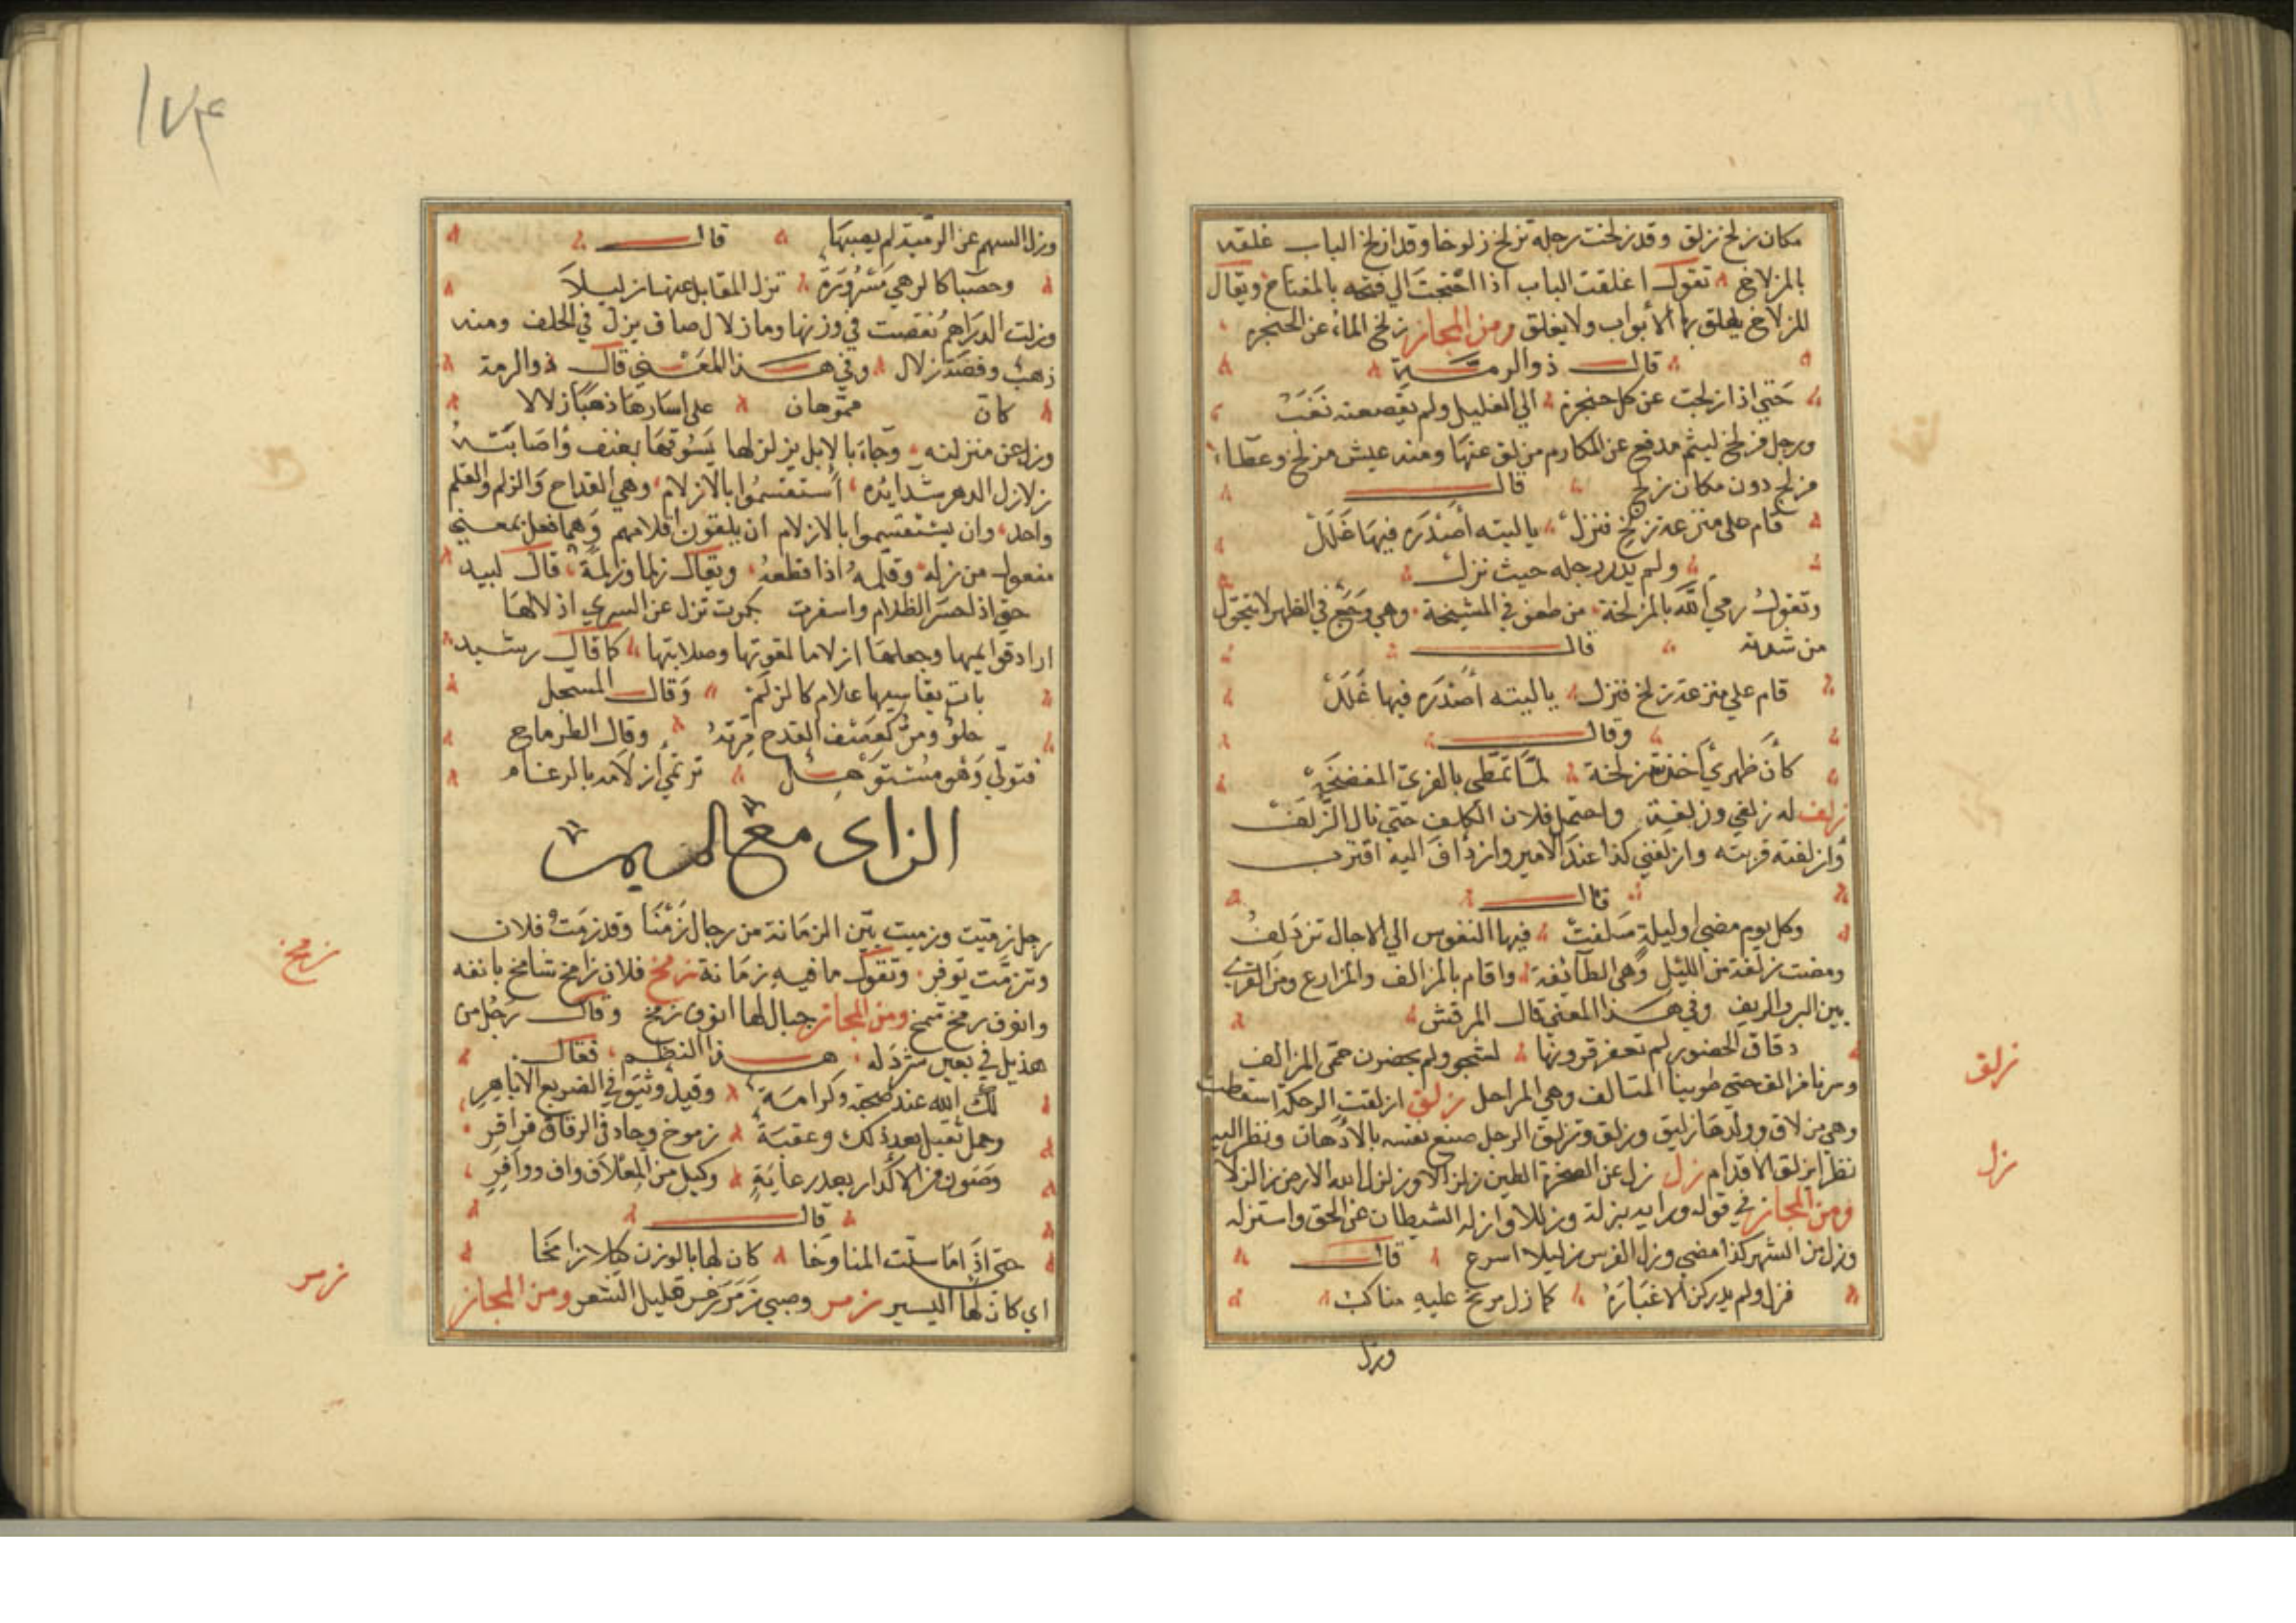 مكان زلخ زلق وقد زلخت رجله تزلخ زلوخا وقد ازلخ الباب غلقه
بالمزلاخ تقول اغلقت الباب اذا احتجت الي فتحه بالمفتاح ويقال
للمزلاخ يغلق به الأبواب ولا يغلق ومن المجاز زلخ الماء عن الحنجرة
قال ذو الرمة
حتي اذا زلجت عن كل حنجرة الي الغليل ولم يقصعنه نغب
ورجل مزلخ لييم مدفع عن المكارم مزلق عنها ومنه عيش مزلخ وعطاء
مزلج دون مكان زلخ قال
قام علي منزعة زلخ فنزل يا ليته أصدره فيها غلل
ولم يدر رجله حيث نزل
وتقول رمي الله بالمزلخة من طعن في المشيخة وهي وجع في الظهر لا يتحول
من شدته قال
قام علي منزعة زلخ فنزل يا ليته أصدره فيها غلل
وقال
كأن ظهري أخذته زلخة لما تمطي بالفري المفضخة
زلف له زلفي وزلفة واحتمل فلان الكلف حتي نال الزلف
وازلفته قربته وازلفني كذا عند الامير وازدلف اليه اقترب
قال
وكل يوم مضي او ليلة سلفت فيها النفوس الي الاجال تزدلف
ومضت زلفة من الليل وهي الطائفة واقام بالمزالف والمزارع ومن القري
بين البر والريف وفي هذا المعني قال المرقش
دقاق الخصور لم تعفر قرونها لشجو ولم يحضرن حمي المزالف
وسرنا مزالف حتي طوينا المتالف وهي المراحل زلق ازلقت الرمكة اسقطت
وهي مزلاق وولدها زليق وزلق وتزلق الرجل صنع نفسه بالادهان ونظر اليه
نظرا يزلق الاقدام زل زل عن الصخرة الطين زلزالا وزلزل الله الارض زلزالا
ومن المجاز في قوله ورايه زلة وزللا وازله الشيطان عن الحق واستزله
وزل من الشهر كذا مضي وزل الفرس زليلا اسرع قال
فزل ولم يدركن الا غباره كما زل مريخ عليه مناكب
وزل
زلق
زل
١٧٤
وزل السهم عن الرمية لم يصبها قال
وحصباء كالرهي مشزورة تزل المقابل عنها زليلا
وزلت الدراهم نقصت في وزنها وماء زلال صاف يزل في الحلق ومنه
ذهب وفضة زلال وفي هذا المعني قال ذو الرمة
كان مموهان علي اسارها ذهبا زلالا
وزل عن منزلته وجاء بالابل يزلزلها يسوقها بعنف واصابته
زلازل الدهر شدايده استقسموا بالازلام وهي القداح والزلم والقلم
واحد وان يستقسموا بالازلام ان يلقون اقلامهم وهما فعل بمعني
مفعول من زلمه وقلمه اذا قطعه ويقال زلما وزلمة قال لبيد
حتي اذا حسر الظلام واسفرت بكرت تزل عن السري ازلامها
اراد قوايمها وجعلها ازلاما لقوتها وصلابتها كما قال رشيد
بات يقاسيها غلام كالزلم وقال المسحل
حلو ومر كعطف القدح مرته وقال الطرماح
فتولي وهو مستوهل ترتمي ازلامه بالرغام
الزاي مع الميم
رجل زميت وزميت بين الزمانة من رجال زمنا وقد زمت فلان
وتزمت توقر وتقول ما فيه زمانة زمخ فلان زامخ شامخ بانفه
وانوف زمخ شمخ ومن المجاز جبال لها انوف زمخ وقال رجل من
هذيل في بعير شرد له هذا النظم فقال
لك الله عندي صحبة وكرامة وقيل وثيق في الضريع الاباهر
وحمل ثقيل بعد ذلك وعقبة زموخ وحاد في الرفاق قراقر
وصون من الاكدار بعد رعاية وكيل من المعلاف واف ووافر
قال
حتي اذا ما سلت المناوخا كان لها بالوزن كيلا زامخا
اي كان لها اليسير زمر وصبي زمر زمر قليل الشعر ومن المجاز
زمخ
زمر